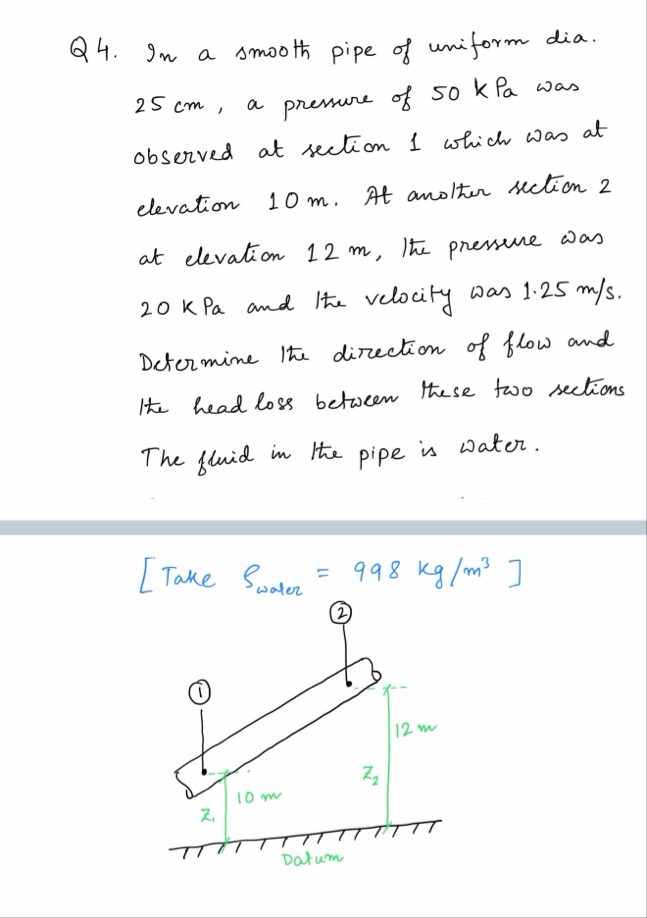 Q4. In a smooth pipe of uniform dia.
25 cm, a pressure of 50 kPa was
observed at section 1 which was at
elevation 10 m. At another section 2
at elevation 12 m, the pressure was
20 kPa and the velocity was 1.25 m/s.
Determine the direction of flow and
the head loss between these two sections
The fluid in the pipe is water.
[Take ρwater = 998 kg/m³]
②
①
12 m
Z₂
10 m
Z₁
Datum